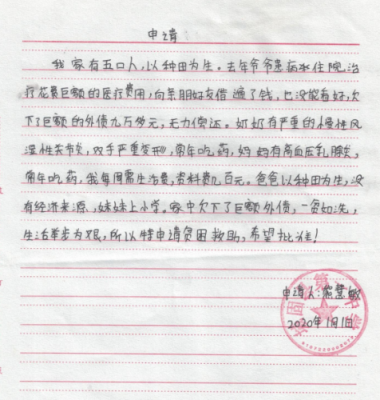 申请
我家有五口人,以种田为生。去年爷爷患病水住院,治
疗花费巨额的医疗费用,向亲朋好友借遍了钱,也没能看好,欠
下了巨额的外债九万多元,无力偿还。奶奶有严重的慢性风
湿性关节炎,双手严重变形,常年吃药,妈妈有高血压乳腺炎,
常年吃药,我每周需生活费,资料费几百元。爸爸以种田为生,没
有经济来源,妹妹上小学。家中欠下了巨额外债,一贫如洗,
生活举步为艰,所以特申请贫困救助,希望批准!
申请人:
2020年1月1日
固 第 中